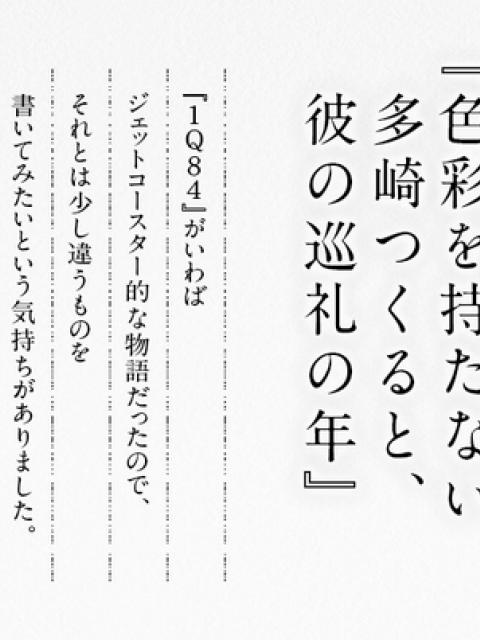 『色彩を持たない
多崎つくると、
彼の巡礼の年』
『1Q84』がいわば
ジェットコースター的な物語だったので、
それとは少し違うものを
書いてみたいという気持ちがありました。